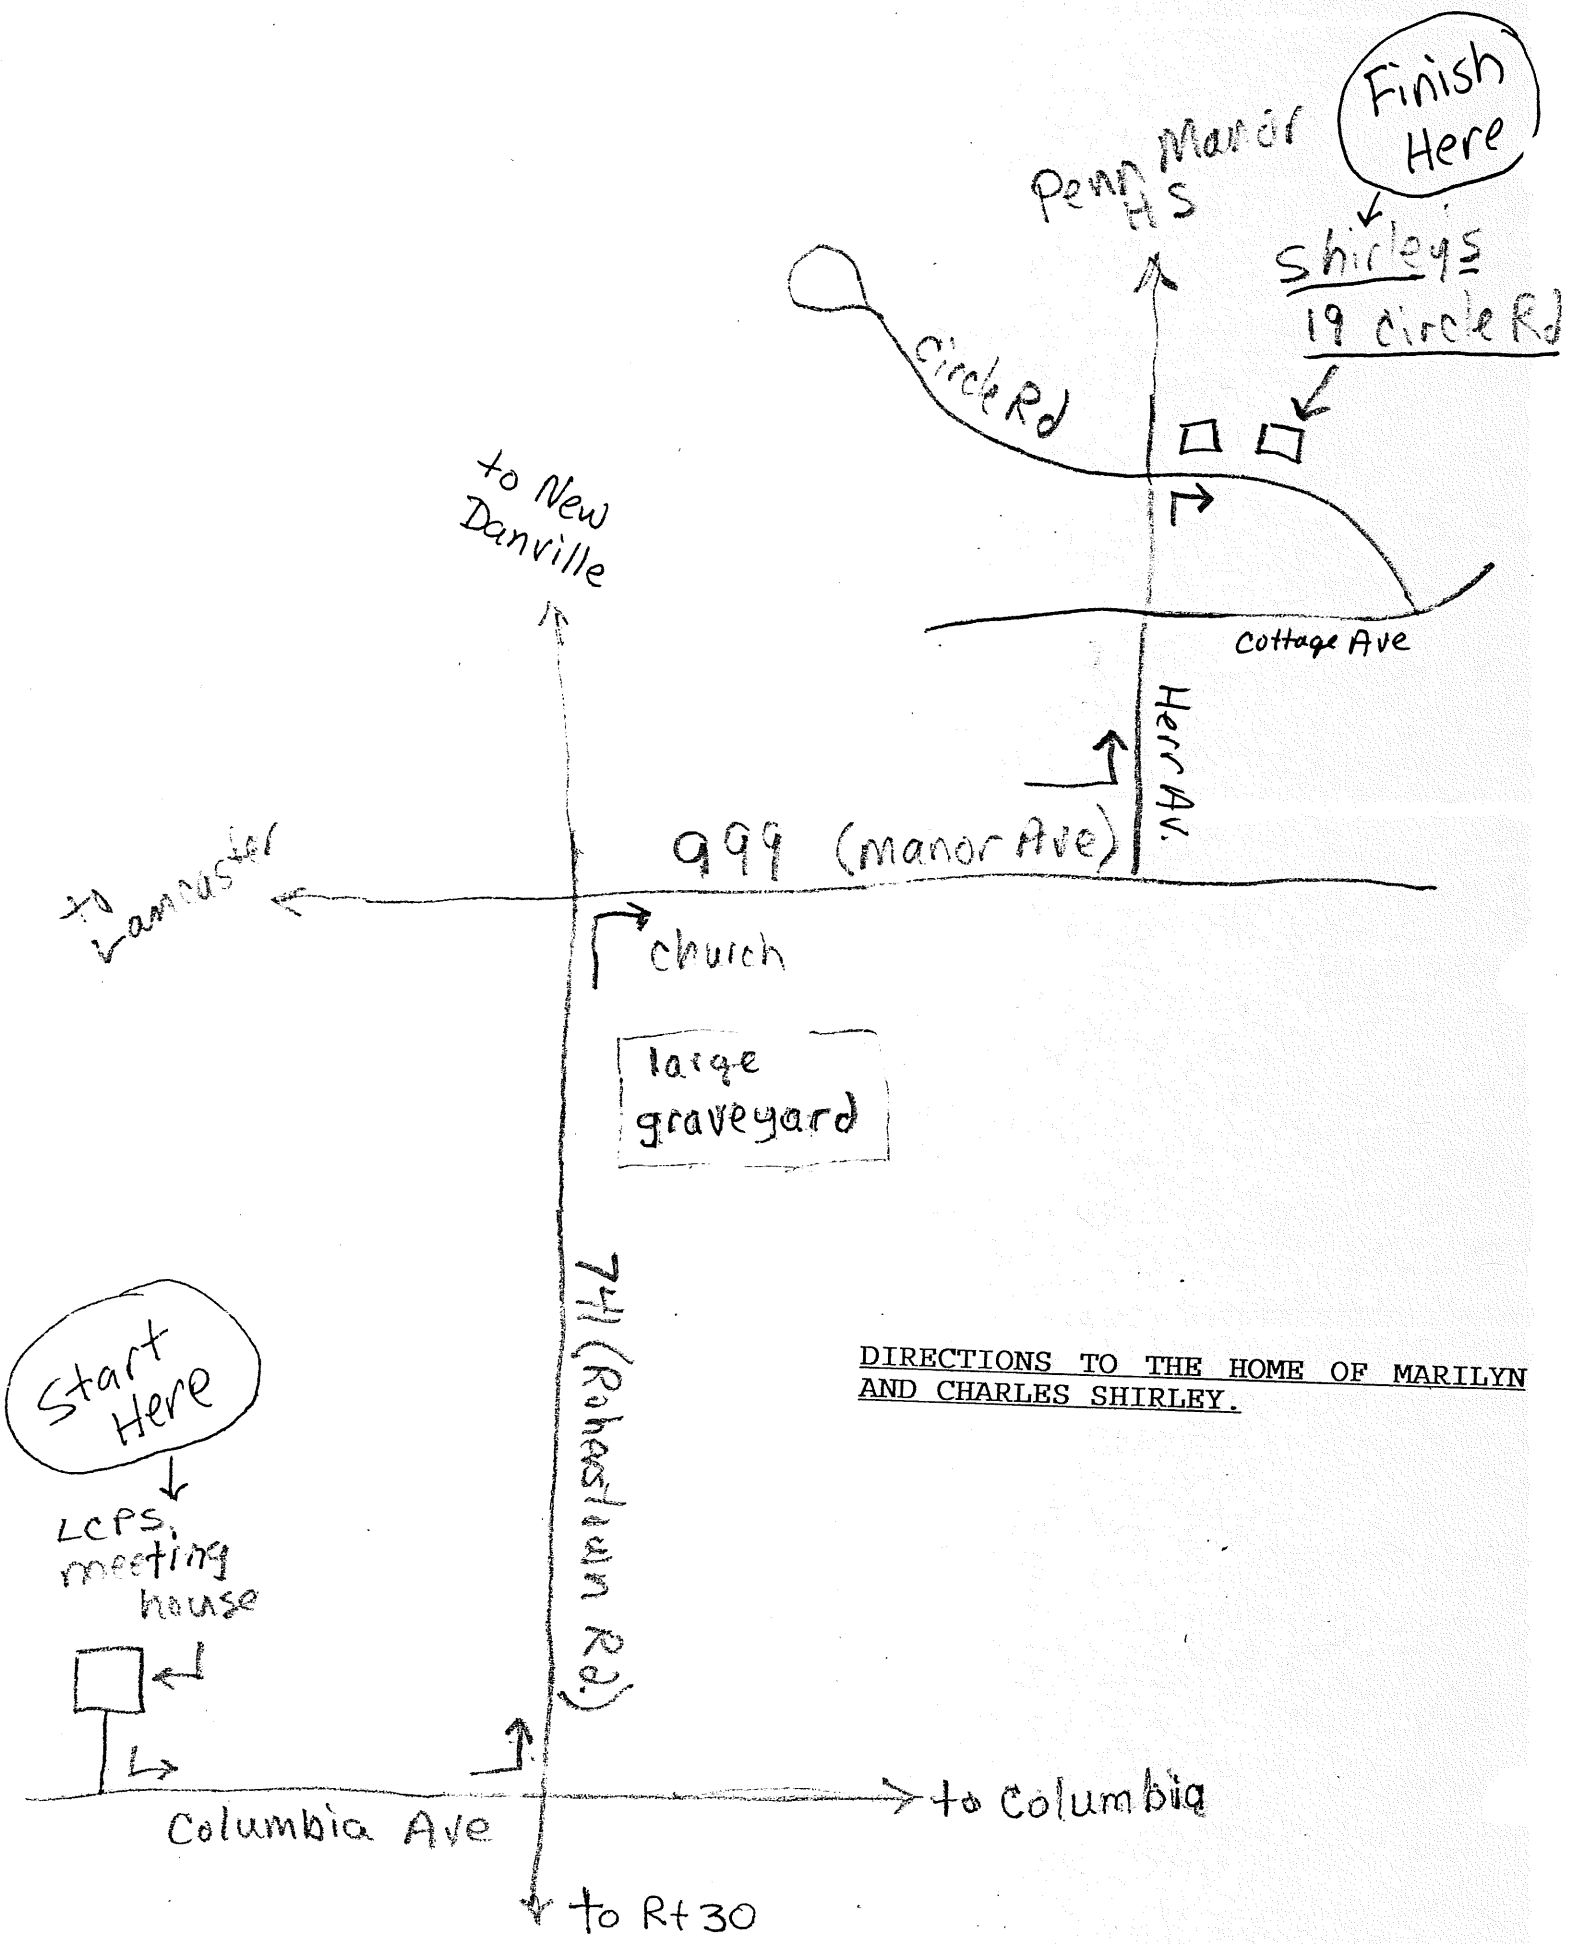 Finish
Here
Penn Manor
HS
Shirleys
19 Circle Rd
Circle Rd
to New
Danville
Cottage Ave
Herr Av.
999 (Manor Ave)
to
Lancaster
church
large
graveyard
741 (Rohrstown Rd.)
Start
Here
DIRECTIONS TO THE HOME OF MARILYN
AND CHARLES SHIRLEY.
LCPS.
meeting
house
Columbia Ave
to Columbia
to Rt 30